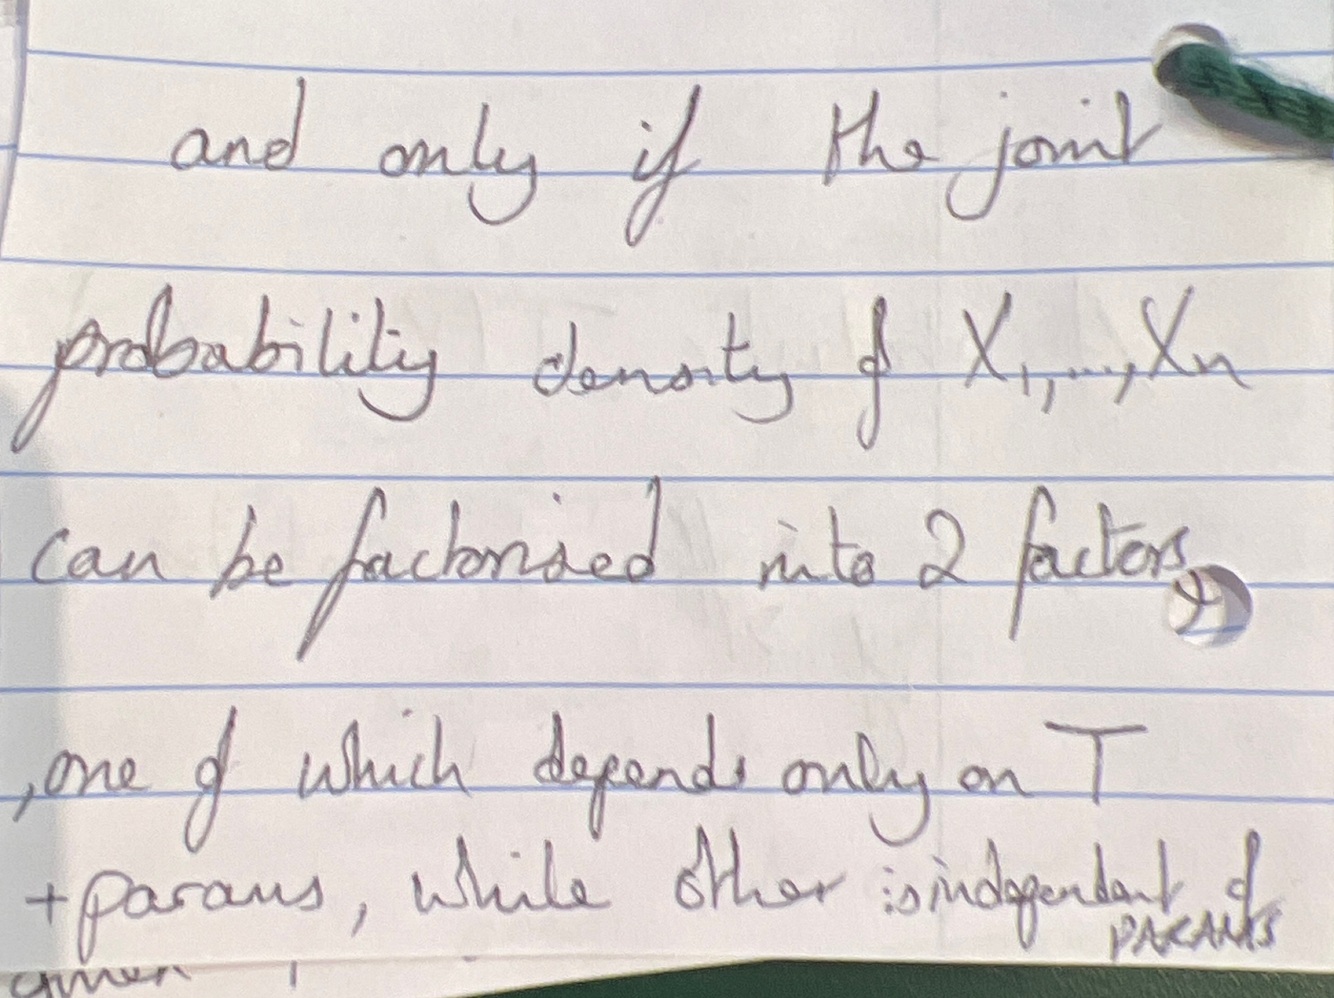 and only if the joint
probability density of X₁,...,Xₙ
can be factorised into 2 factors
,one of which depends only on T
+ params, while other is independent of
PARAMS